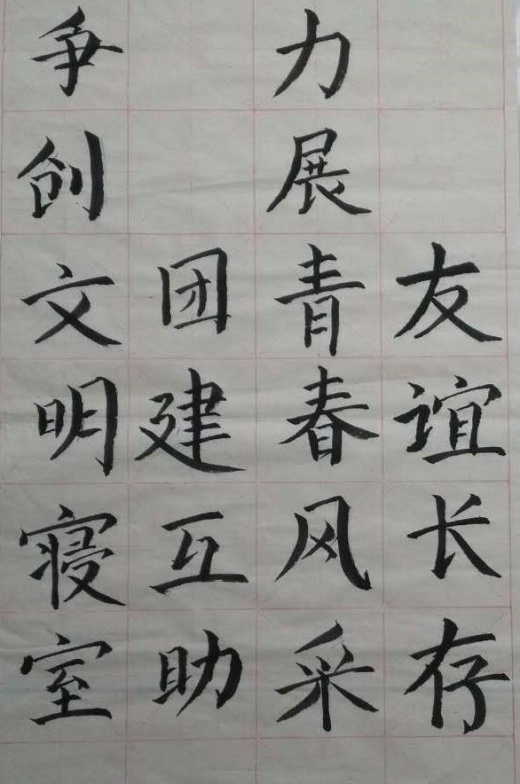 争创文明寝室
团建互助
力展青春风采
友谊长存